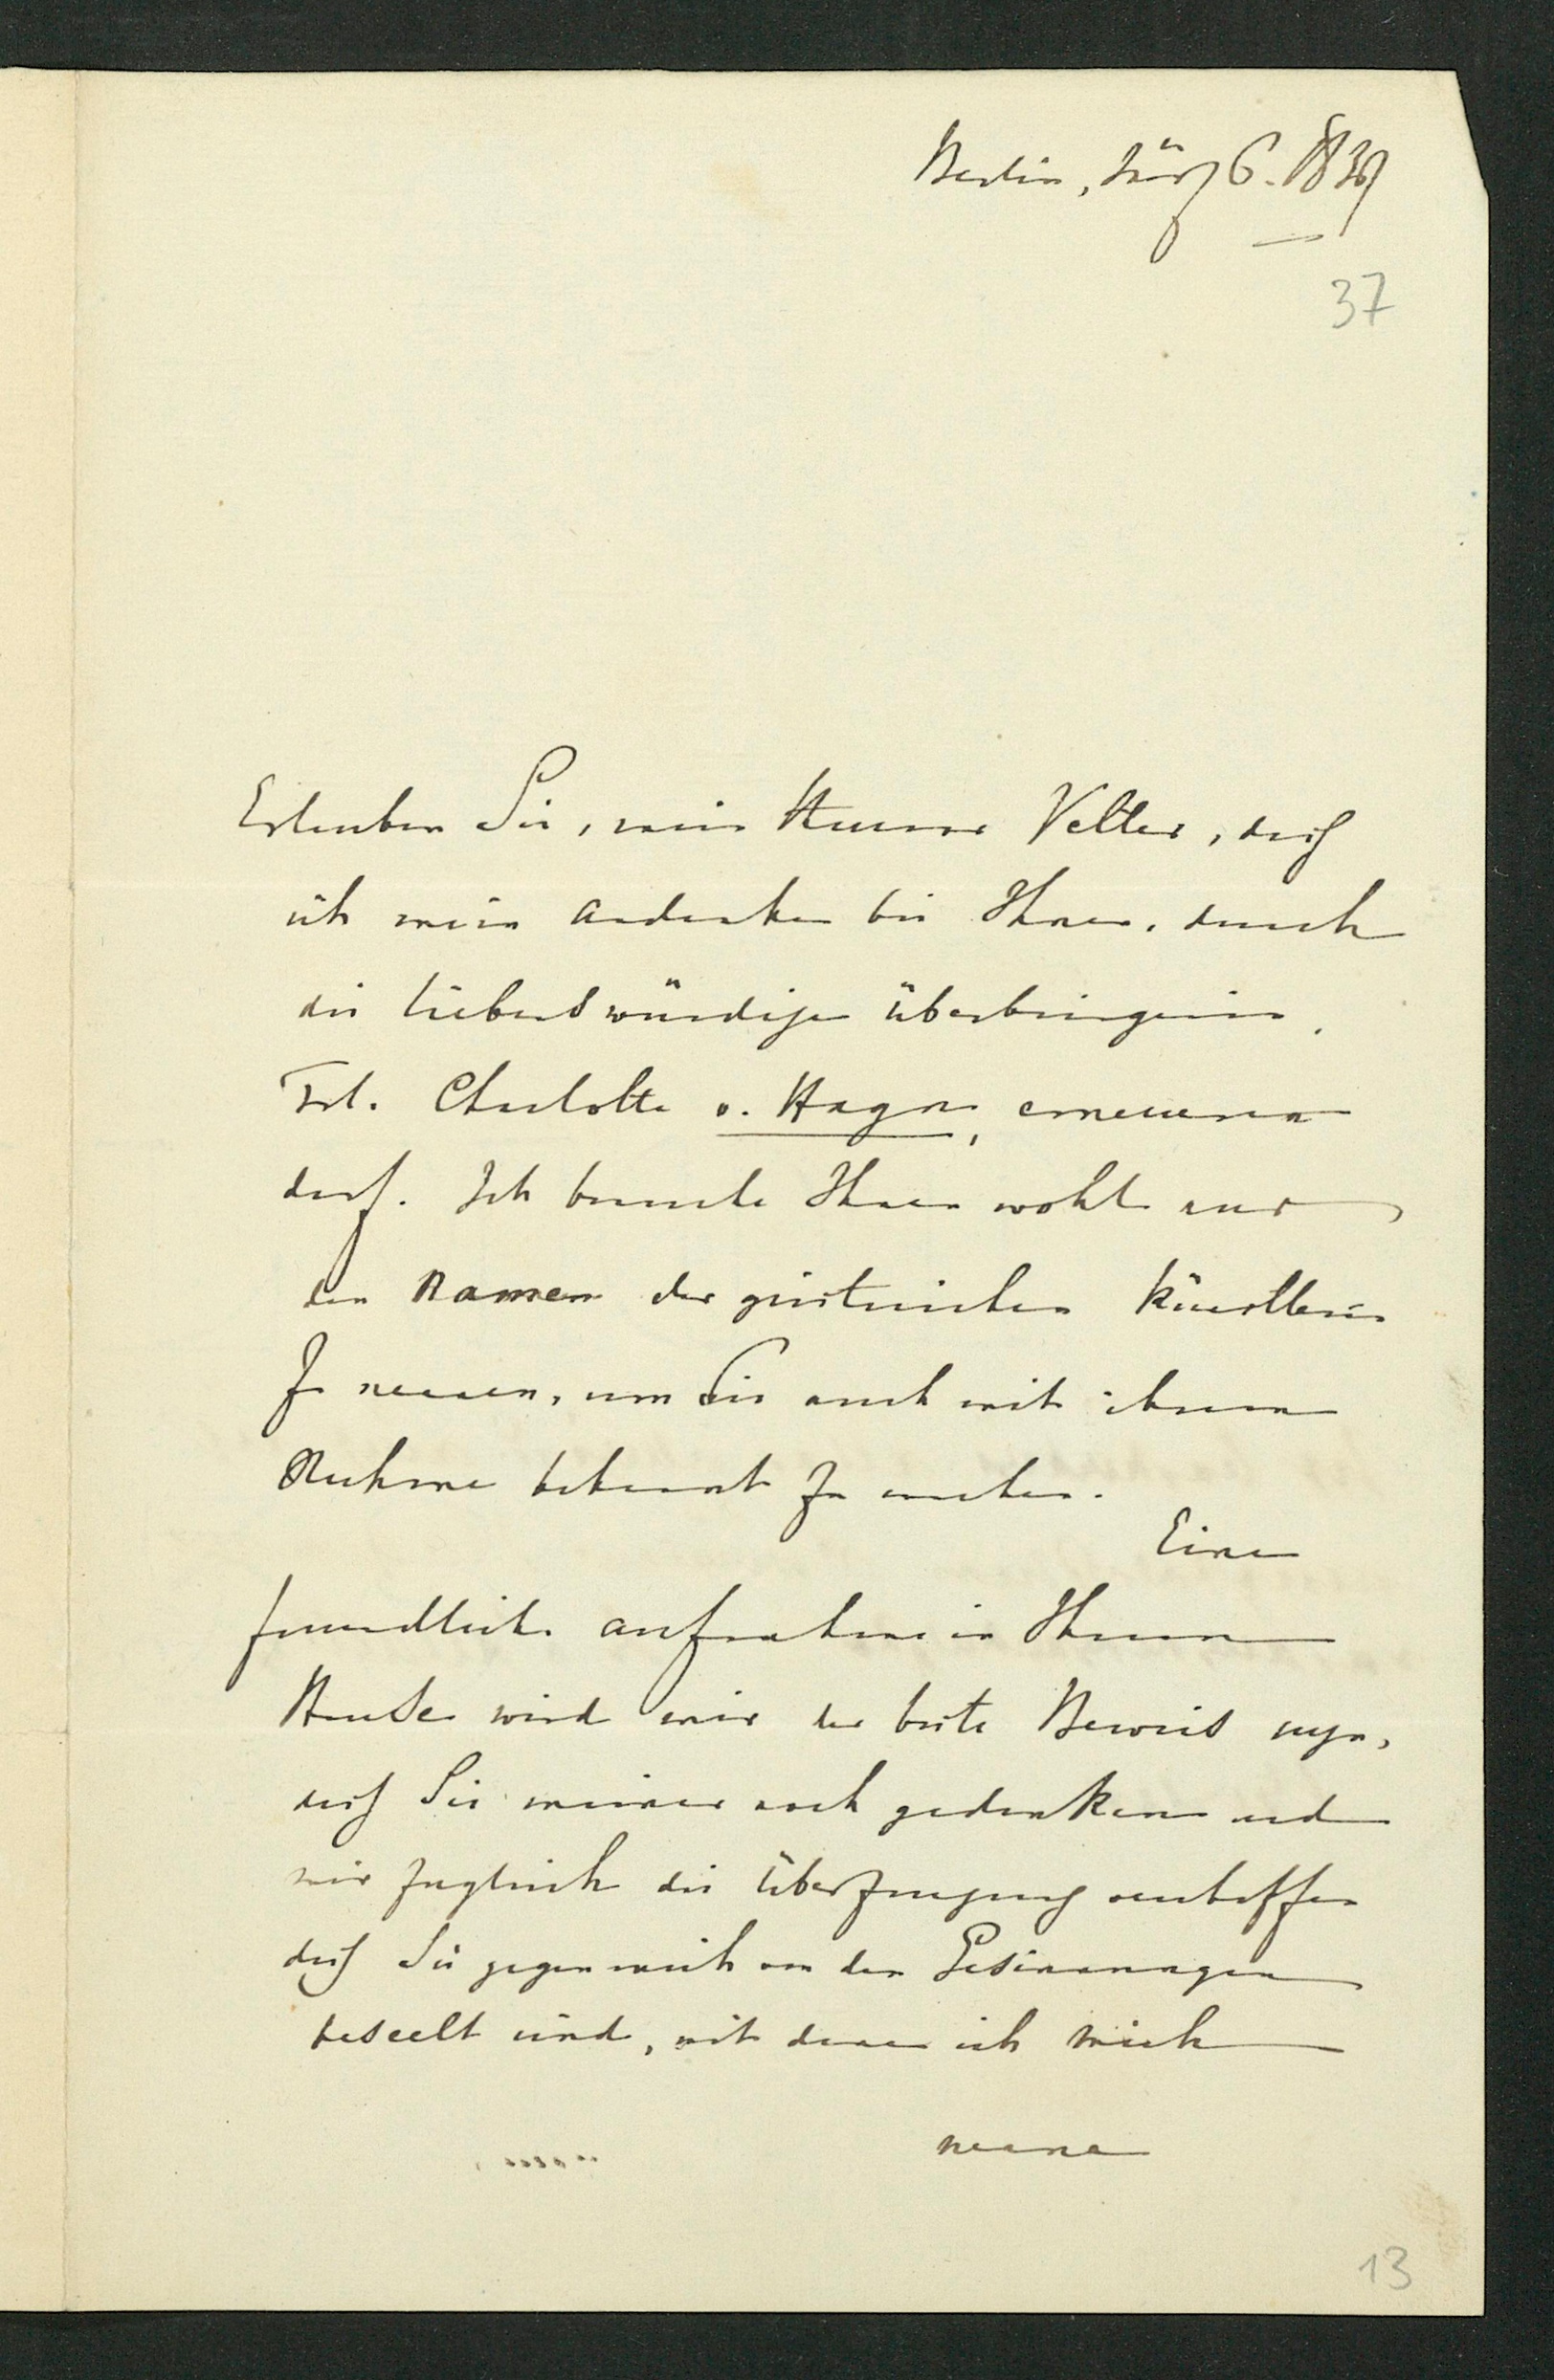 Berlin, März 6. 1837
37
Erlauben Sie, mein theurer Vetter, daß
ich mein Andenken bei Ihnen, durch
die liebenswürdige Überbringerin,
Frl. Charlotte v. Hagn, erneuern
darf. Ich brauche Ihnen wohl nur
den Namen der geistreichen Künstlerin
zu nennen, um Sie auch mit ihrem
Ruhme bekannt zu machen.
Eine
freundliche Aufnahme in Ihrem
Hause wird mir der beste Beweis seyn,
daß Sie meiner noch gedenken und
mir zugleich die Überzeugung verschaffen
daß Sie gegen mich von den Gesinnungen
beseelt sind, mit denen ich mich
nenne
13